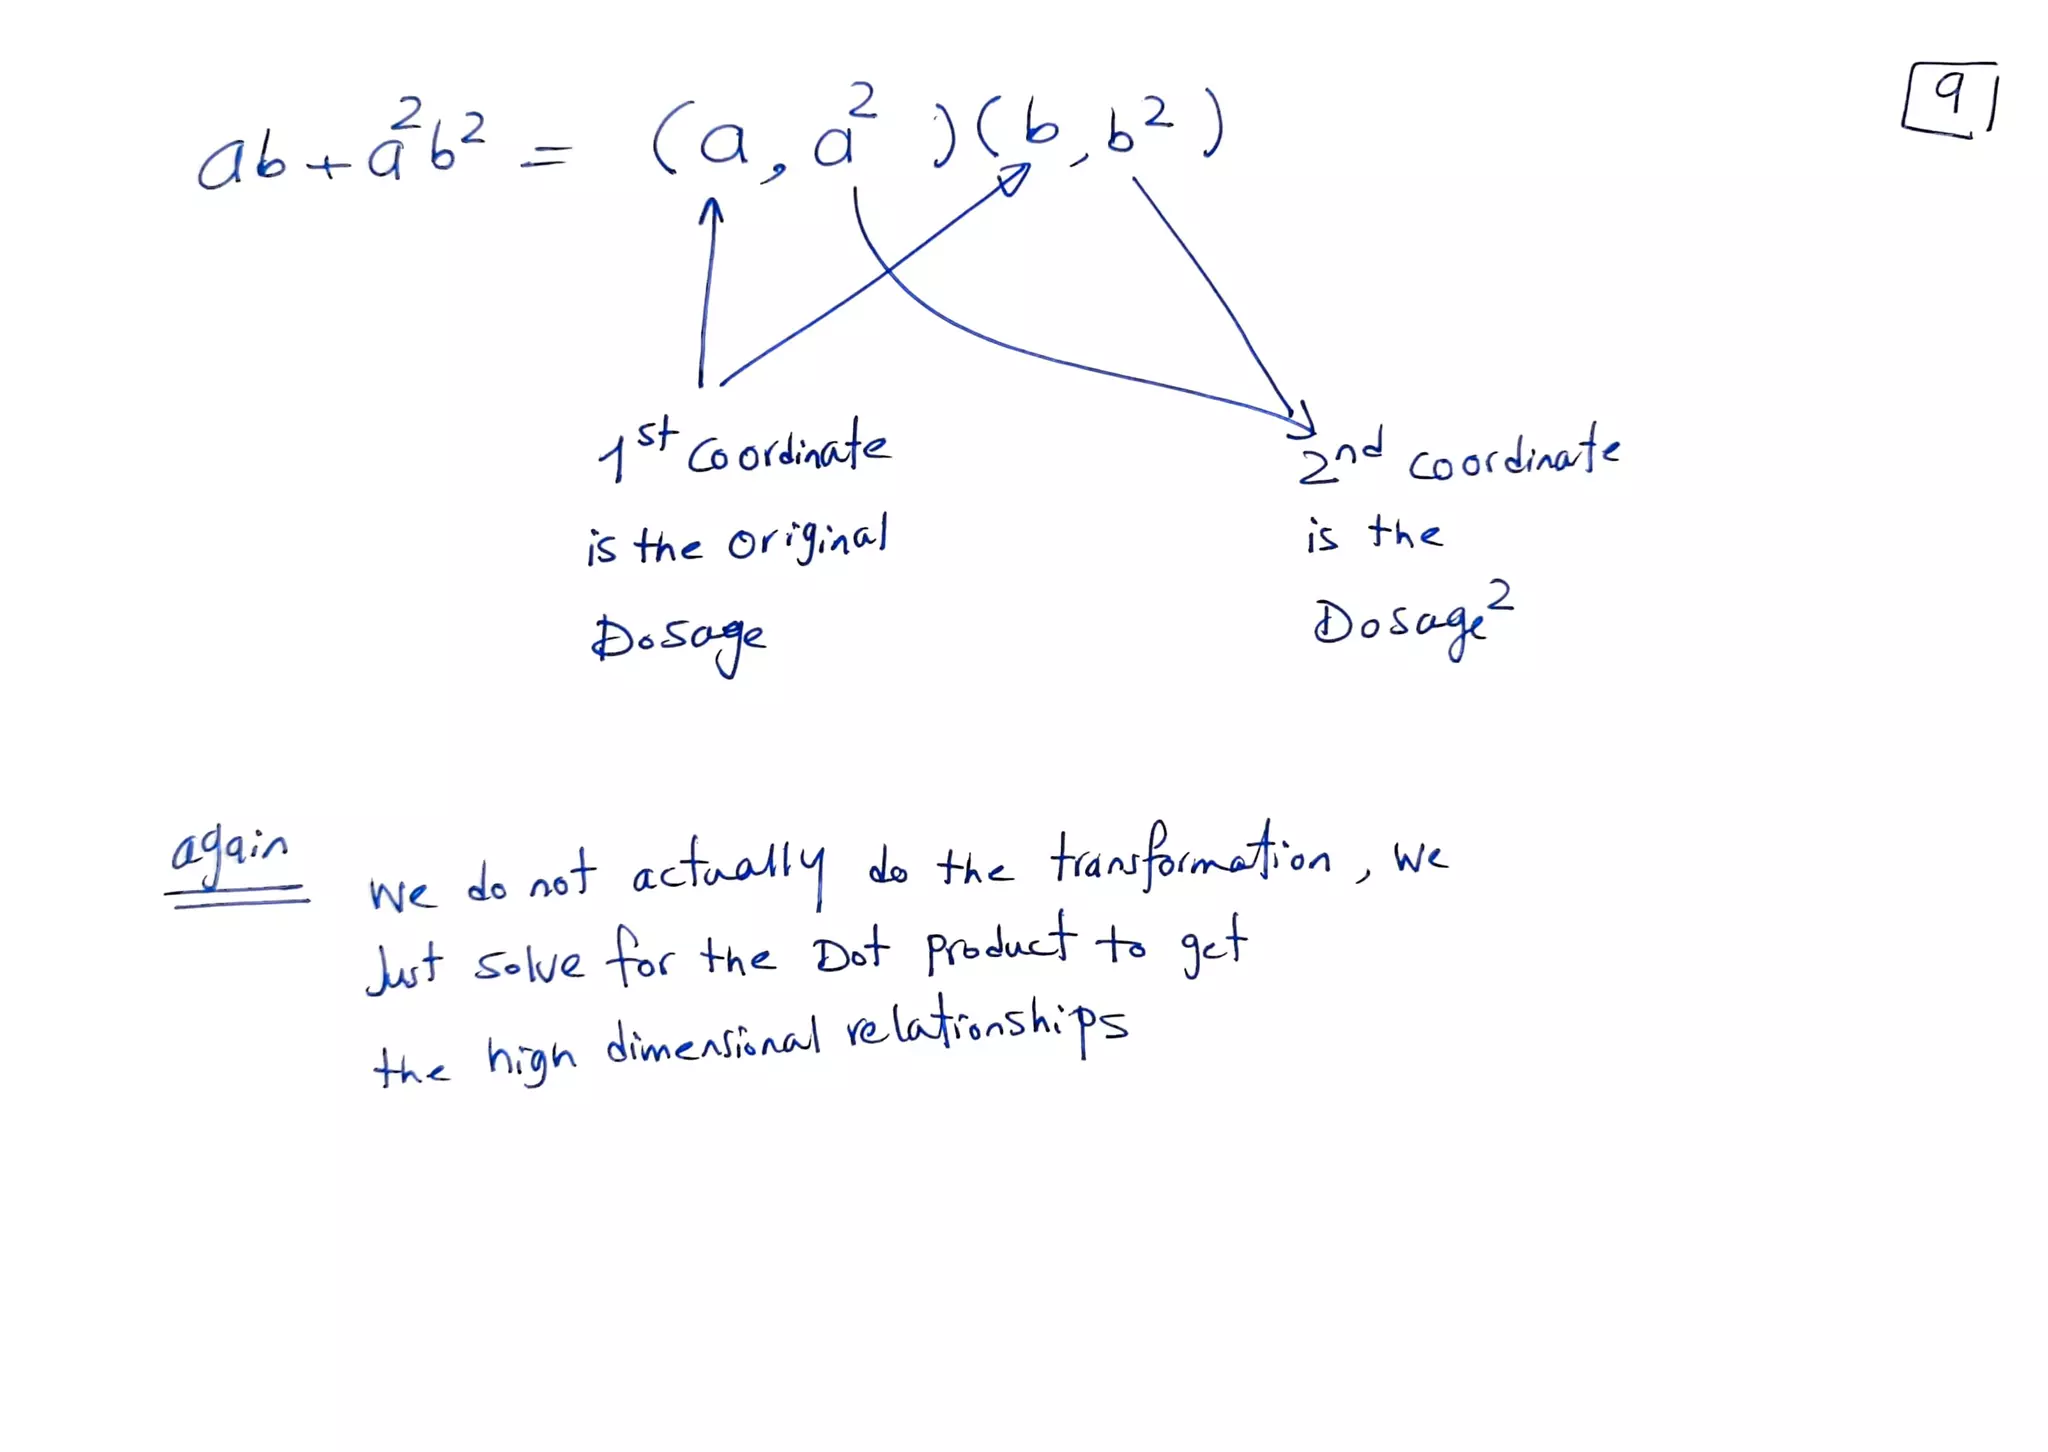 9
ab + a²b² = (a, a²)(b, b²)
1st Coordinate
is the original
Dosage
2nd coordinate
is the
Dosage²
again
we do not actually do the transformation, we
Just solve for the Dot product to get
the high dimensional relationships